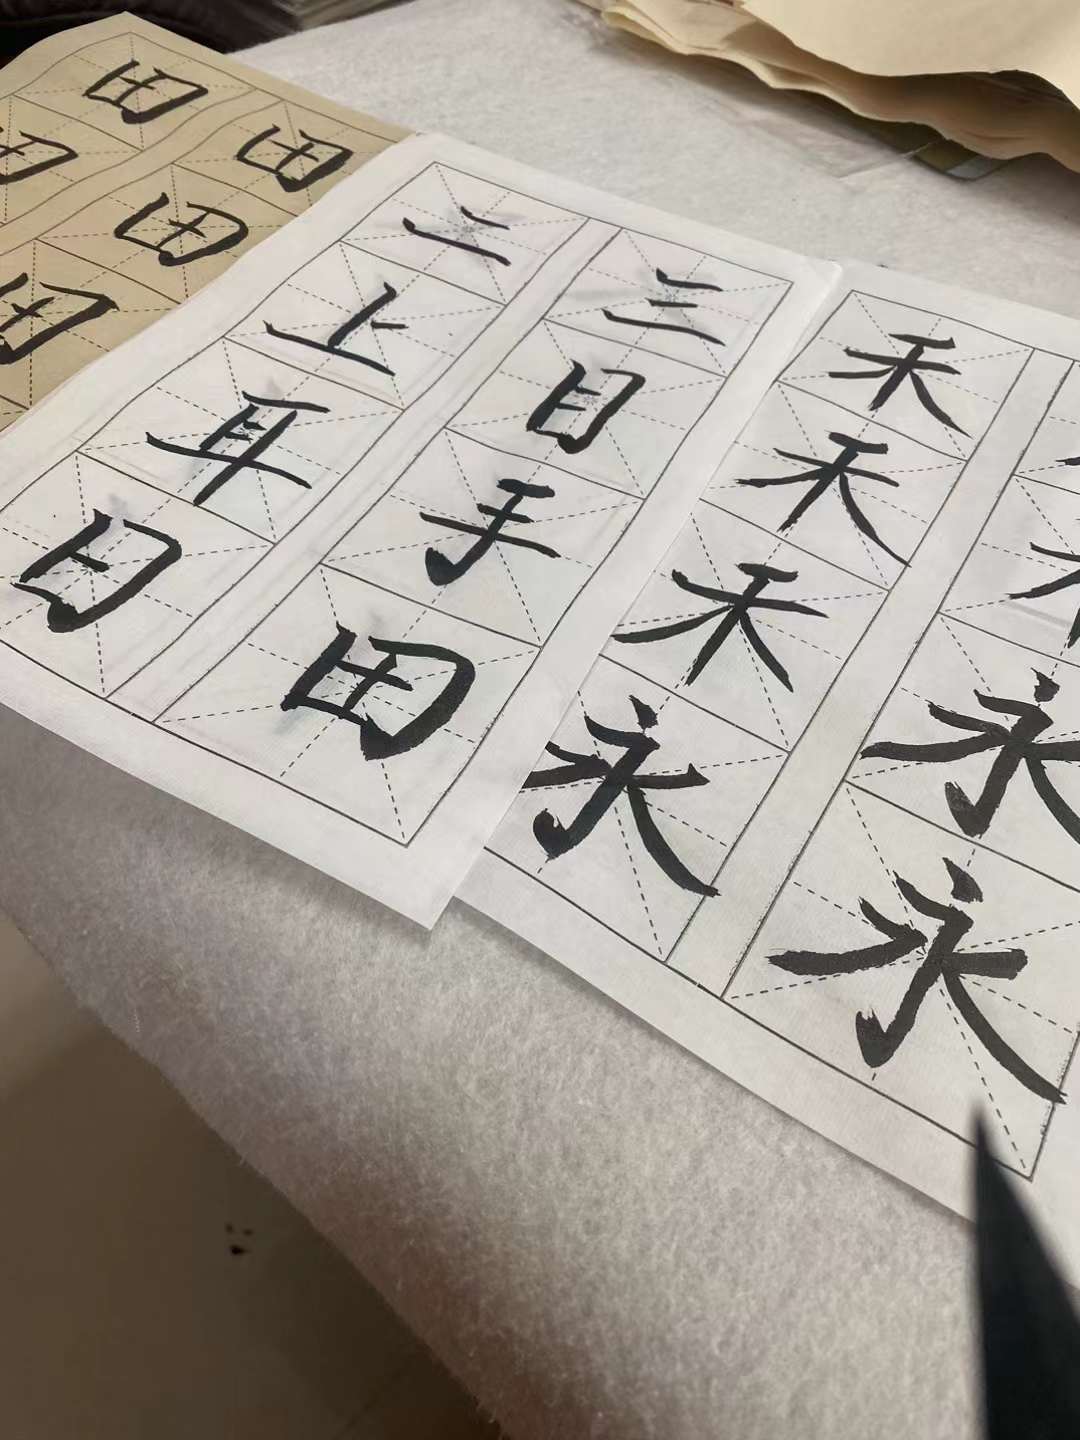 田田
田田田
二上耳日
三日手田
禾禾禾永
永永